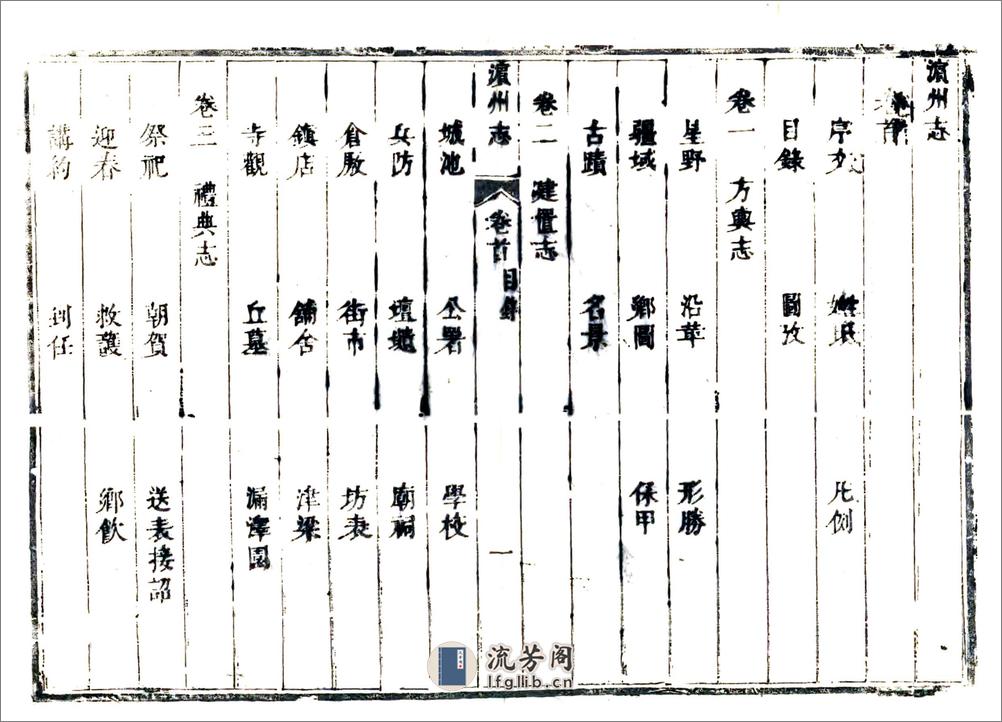 濵州志
卷首
序文 姓氏 凡例
目錄 圖攷
卷一 方輿志
星野 沿革 形勝
疆域 鄉圖 保甲
古蹟 名景
卷二 建置志
濵州志 卷首 目錄 一
城池 公署 學校
兵防 壇壝 廟祠
倉廒 街市 坊表
鎮店 舖舍 津梁
寺觀 丘墓 漏澤園
卷三 禮典志
祭祀 朝賀 送表接詔
迎春 救護 鄉飲
講約 到任
流芳阁
lfglib.cn